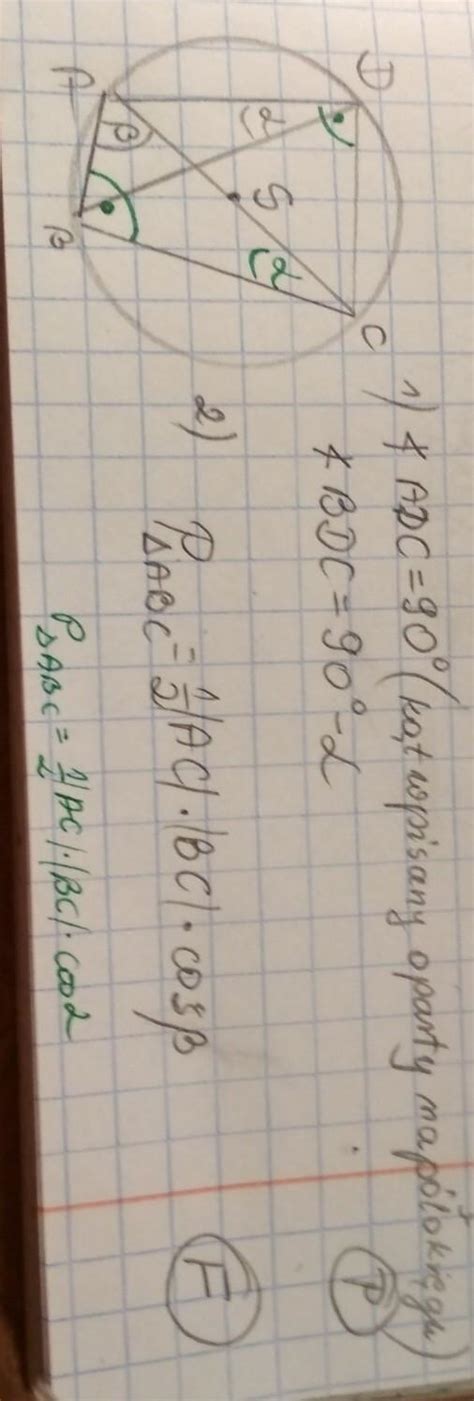 D
C
S
A
B
α
β
α
1) ∢ ADC = 90° (kąt wpisany oparty na półokręgu)
∢ BDC = 90° - α
P
2) P△ABC = 1/2 |AC| · |BC| · cosβ
F
P△ABC = 1/2 |AC| · |BC| · cosα